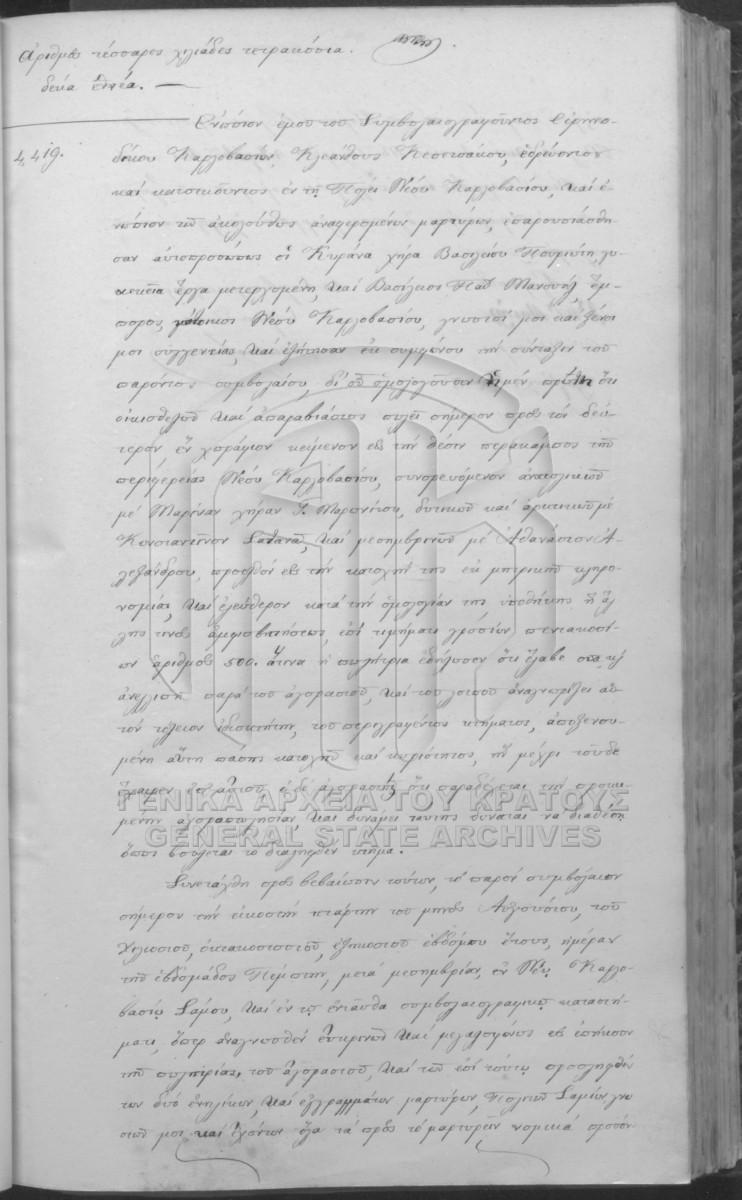 Ἀριθμὸς τέσσαρες χιλιάδες τετρακόσια
δέκα ἐννέα. —
4,419.
Ἐνώπιον ἐμοῦ τοῦ Συμβολαιογραφοῦντος Εἰρηνο-
δίκου Καρλοβασίων, Κλεάνθους, ἑδρεύοντος
καὶ κατοικοῦντος ἐν τῇ Πόλει Νέου Καρλοβασίου, καὶ ἐ-
νώπιον τῶν ἀκολούθως ἀναφερομένων μαρτύρων, ἐπαρουσιάσθη-
σαν αὐτοπροσώπως οἱ Κυράνα χήρα Βασιλείου Πουριώτη, γυ-
ναικεῖα ἔργα μετερχομένη, καὶ Βασίλειος Παῦ Μανουήλ, ἔμ-
πορος, κάτοικοι Νέου Καρλοβασίου, γνωστοί μοι καὶ ξένοι
μοι συγγενείας, καὶ ἐζήτησαν ἐκ συμφώνου τὴν σύνταξιν τοῦ
παρόντος συμβολαίου, δι' οὗ ὁμολογοῦσιν ἡ μὲν πρώτη ὅτι
οἰκειοθελῶς καὶ ἀπαραβιάστως πωλεῖ σήμερον πρὸς τὸν δεύ-
τερον ἓν χωράφιον κείμενον εἰς τὴν θέσιν περακάμπος τῆς
περιφερείας Νέου Καρλοβασίου, συνορευόμενον ἀνατολικῶς
μὲ Μαρίναν χήραν Γ. Μαρονίτου, δυτικῶς καὶ ἀρκτικῶς μὲ
Κωνσταντῖνον, καὶ μεσημβρινῶς μὲ Ἀθανάσιον Ἀ-
λεξάνδρου, προελθὸν εἰς τὴν κατοχήν της ἐκ μητρικῆς κληρο-
νομίας, καὶ ἐλεύθερον κατὰ τὴν ὁμολογίαν της ὑποθήκης ἢ ἄλ-
λης τινὸς ἀμφισβητήσεως, ἐπὶ τιμήματι γροσίων πεντακοσί-
ων ἀριθμὸς 500. ἅτινα ἡ πωλήτρια ἐδήλωσεν ὅτι ἔλαβε
ἀνελλιπῆ παρὰ τοῦ ἀγοραστοῦ, καὶ τοῦ λοιποῦ ἀναγνωρίζει αὐ-
τὸν τέλειον ἰδιοκτήτην, τοῦ περιγραφέντος κτήματος, ἀποξενου-
μένη αὕτη πάσης κατοχῆς καὶ κυριότητος, ἣν μέχρι τοῦδε
ἔφαιρεν ἐπ' αὐτοῦ, ὁ δὲ ἀγοραστὴς ὅτι παραδέχεται τὴν προκει-
μένην ἀγοραπωλησίαν, καὶ δυνάμει ταύτης δύναται νὰ διαθέσῃ
ὅπως βούλεται τὸ διαληφθὲν κτῆμα.
Συνετάχθη πρὸς βεβαίωσιν τούτων, τὸ παρὸν συμβόλαιον
σήμερον τὴν εἰκοστὴν τετάρτην τοῦ μηνὸς Αὐγούστου, τοῦ
χιλιοστοῦ, ὀκτακοσιοστοῦ, ἑξηκοστοῦ ἑβδόμου ἔτους, ἡμέραν
τῆς ἑβδομάδος Πέμπτην, μετὰ μεσημβρίαν, ἐν Νέῳ Καρλο-
βασίῳ Σάμου, καὶ ἐν τῷ ἐνταῦθα συμβολαιογραφικῷ καταστή-
ματι, ὅπερ ἀναγνωσθὲν εὐκρινῶς καὶ μεγαλοφώνως εἰς ἐπήκοον
τῆς πωλητρίας, τοῦ ἀγοραστοῦ, καὶ τῶν ἐπὶ τούτῳ προσληφθέν
των δύο ἐνηλίκων, καὶ ἐγγραμμάτων μαρτύρων, Πολιτῶν Σαμίων γνω
στῶν μοι καὶ ἐχόντων ὅλα τὰ πρὸς τὸ μαρτυρεῖν νομικὰ προσόν-
ΓΕΝΙΚΑ ΑΡΧΕΙΑ ΤΟΥ ΚΡΑΤΟΥΣ
GENERAL STATE ARCHIVES